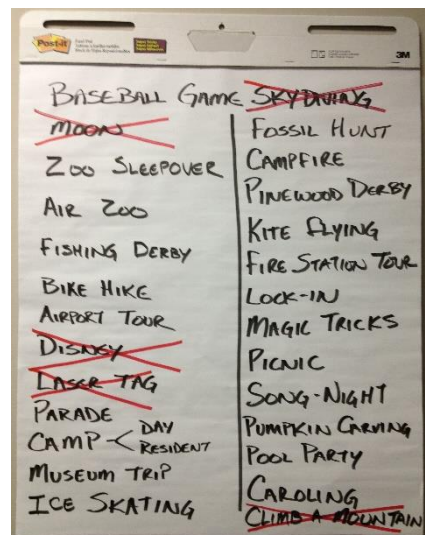 Post-it
3M
BASEBALL GAME
MOON
ZOO SLEEPOVER
AIR ZOO
FISHING DERBY
BIKE HIKE
AIRPORT TOUR
DISNEY
LASER TAG
PARADE
CAMP < DAY
RESIDENT
MUSEUM TRIP
ICE SKATING
SKYDIVING
FOSSIL HUNT
CAMPFIRE
PINEWOOD DERBY
KITE FLYING
FIRE STATION TOUR
LOCK-IN
MAGIC TRICKS
PICNIC
SONG-NIGHT
PUMPKIN CARVING
POOL PARTY
CAROLING
CLIMB A MOUNTAIN